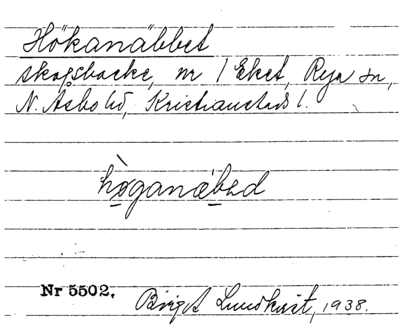 Hökanäbbet
skogsbacke, nr 1 Eket, Rya sn,
N. Åsbo hd, Kristianstads l.
hø̀ganæ̀bəd
Nr 5502. Birgit Lundkvist, 1938.